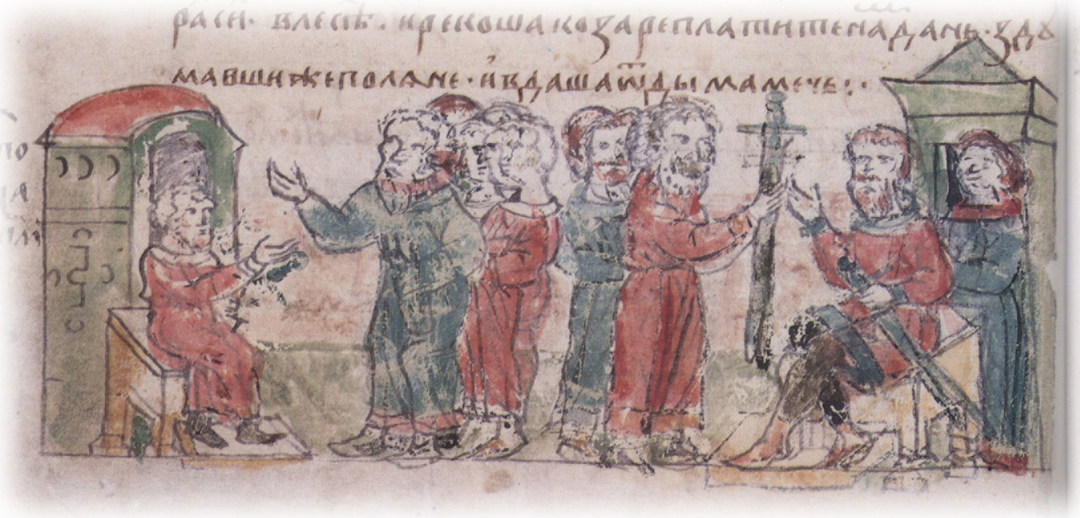 раси· влесѣ· ирекошакозареплатитенадань·зду
мавшижеполѧне·ивдашаѿдымамечь:·
по
ша